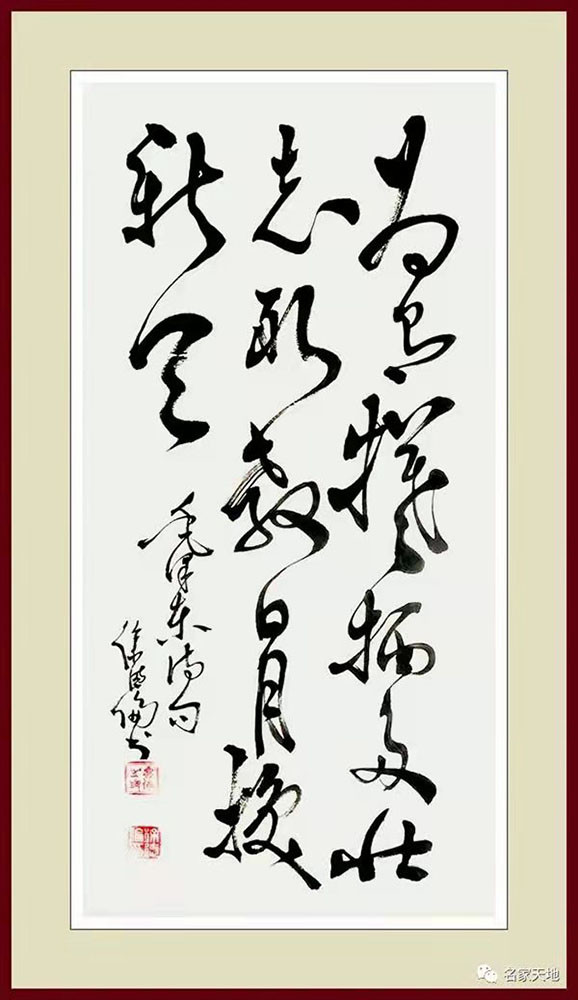 为有犧牲多壮
志敢教日月换
新天
毛泽东诗句
徐书
名家天地